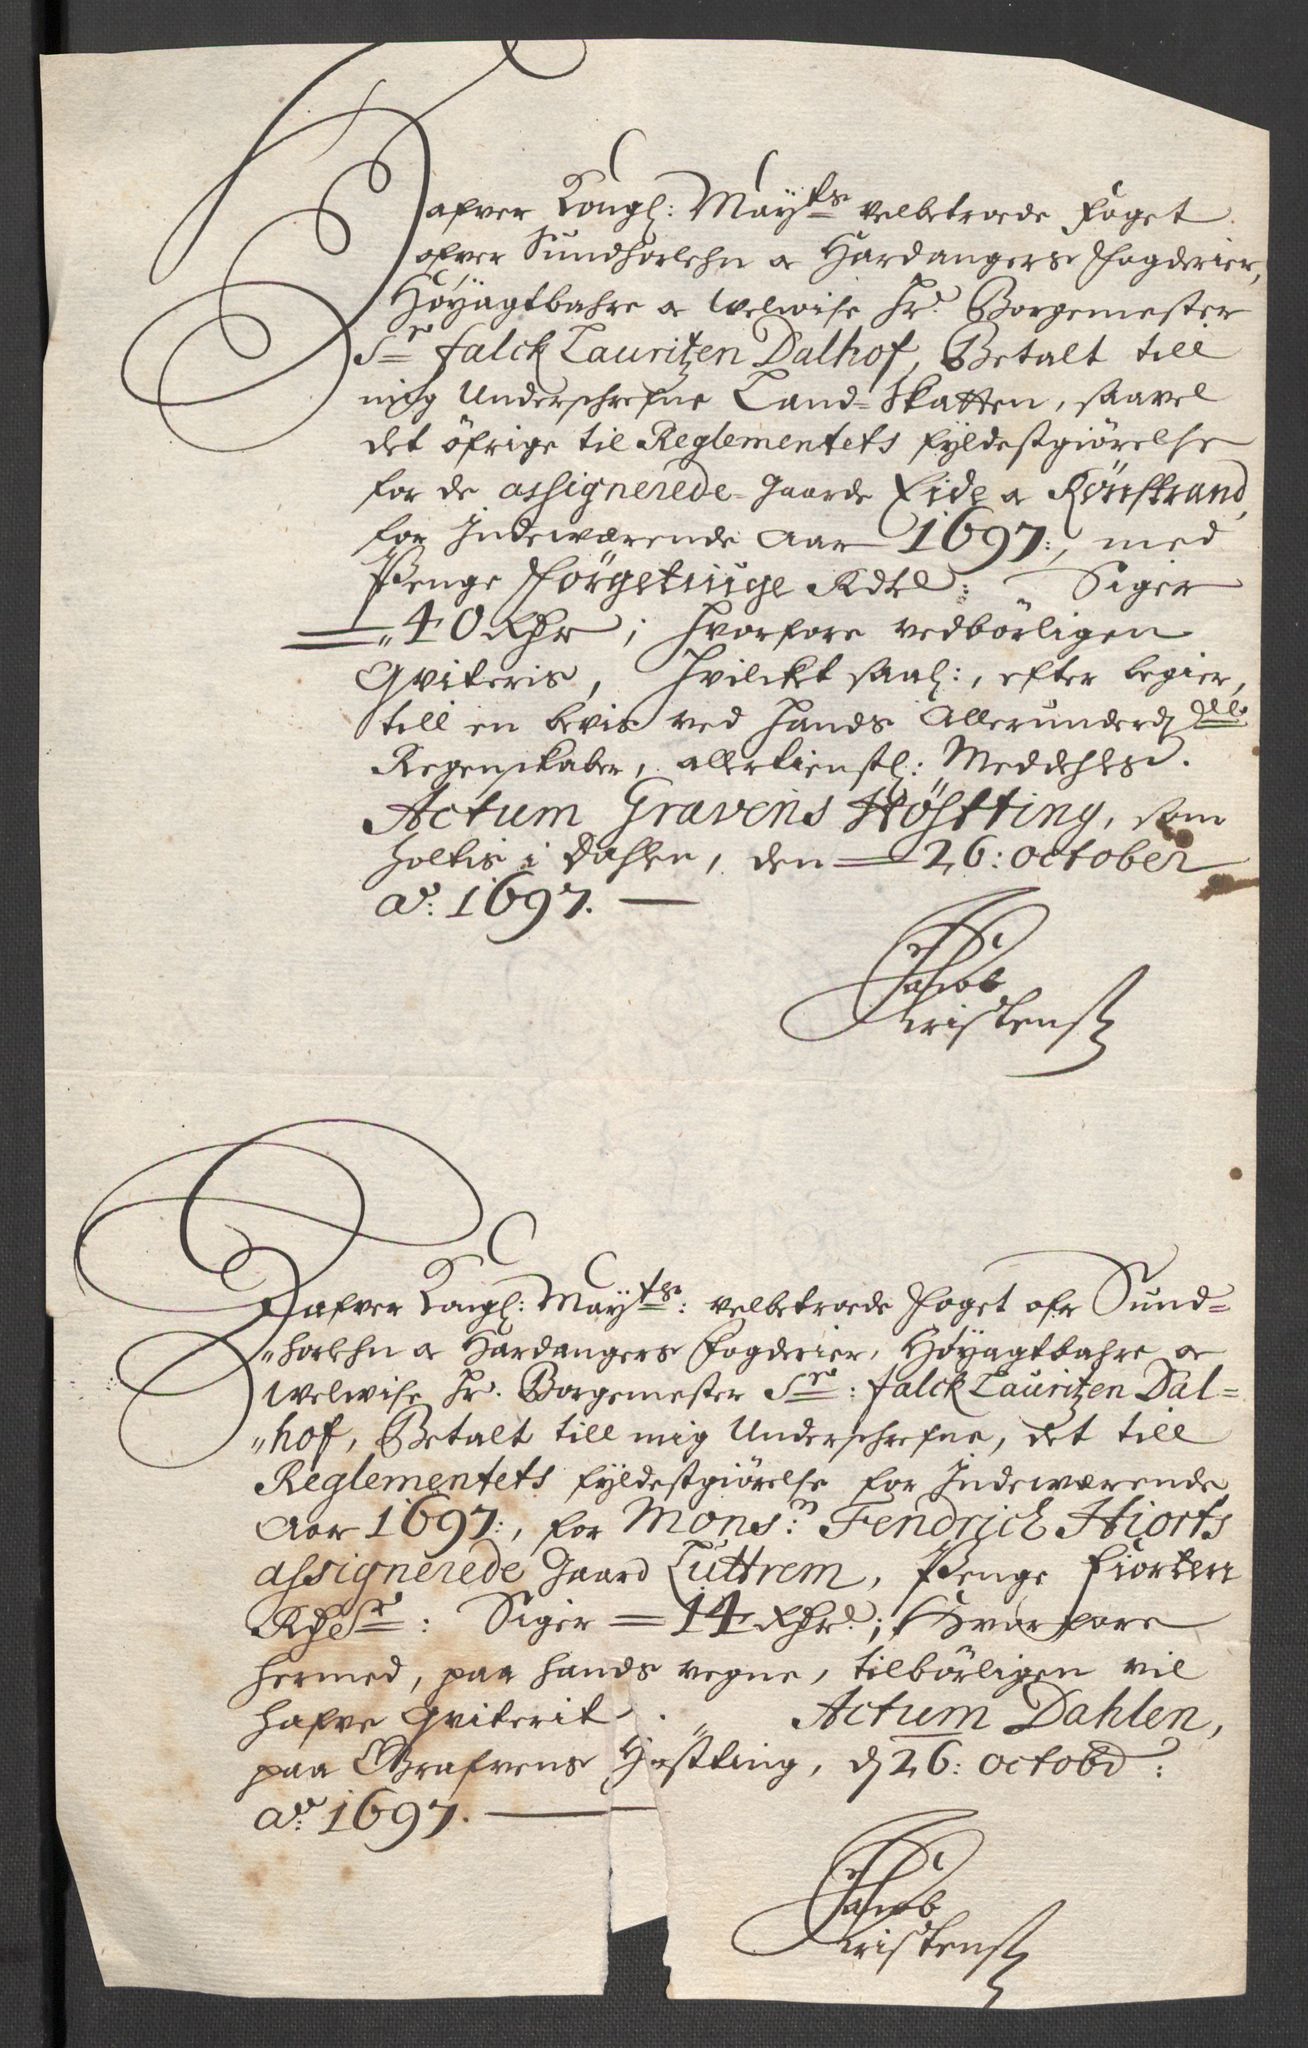 Hafver Kongl: May:ts velbetroede foget
ofver Sundhorlehn oc Hardangers Fogderier,
Høyagtbahre oc Welwise Hr. Borgemester
Sr. falck Lauritzen Dalhof, Betalt till
mig Underschrefne Land-Skatten, saavel
det öfrige til Reglementets fyldestgiørelse
for de assignerede Gaarde Eide oc Rörstrand,
for Indeværende Aar 1697:, med
Penge Förgetiuge Rdlr: Siger
40 Rdr; hvorfore vedbörligen
Qviteris, Hvilcket saal:, efter begier,
till en bevis ved hands Allerunderd:
Regenskaber, allertienstl: Meddehles.
Actum Gravens Höstting, som
holtis i Dahlen, den 26: october
Ao: 1697.
Jacob
Kristens
Hafver Kongl: May:ts: velbetroede Foget ofr Sund-
horlehn oc Hardangers Fogderier, Høyagtbahre oc
Welwise Hr. Borgemester Sr: falck Lauritzen Dal-
hof, Betalt till mig Underschrefne, det till
Reglementets fyldestgiørelse for Indeværende
Aar 1697:, for Mons:r Fendrich Hiorts
assignerede Gaard Luttrem, Penge fiorten
Siger 14 Rdr; Hvorfore
hermed, paa hands vegne, tilbörligen vil
hafve Qviterit. Actum Dahlen,
paa Grafvens Høstting, d 26: octobr:
Ao: 1697.
Jacob
Kristens